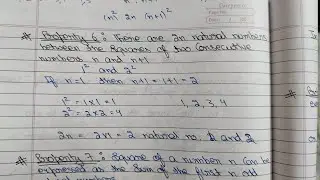 n² 2n (n+1)²
* Property 6: There are 2n natural numbers
between the squares of two consecutive
numbers n and n+1
1² and 2²
If n=1 then n+1 = 1+1 = 2
1² = 1×1 = 1 1, 2, 3, 4
2² = 2×2 = 4
2n = 2×1 = 2 natural no.
* Property 7: Square of a number n can be
expressed as the sum of the first n odd